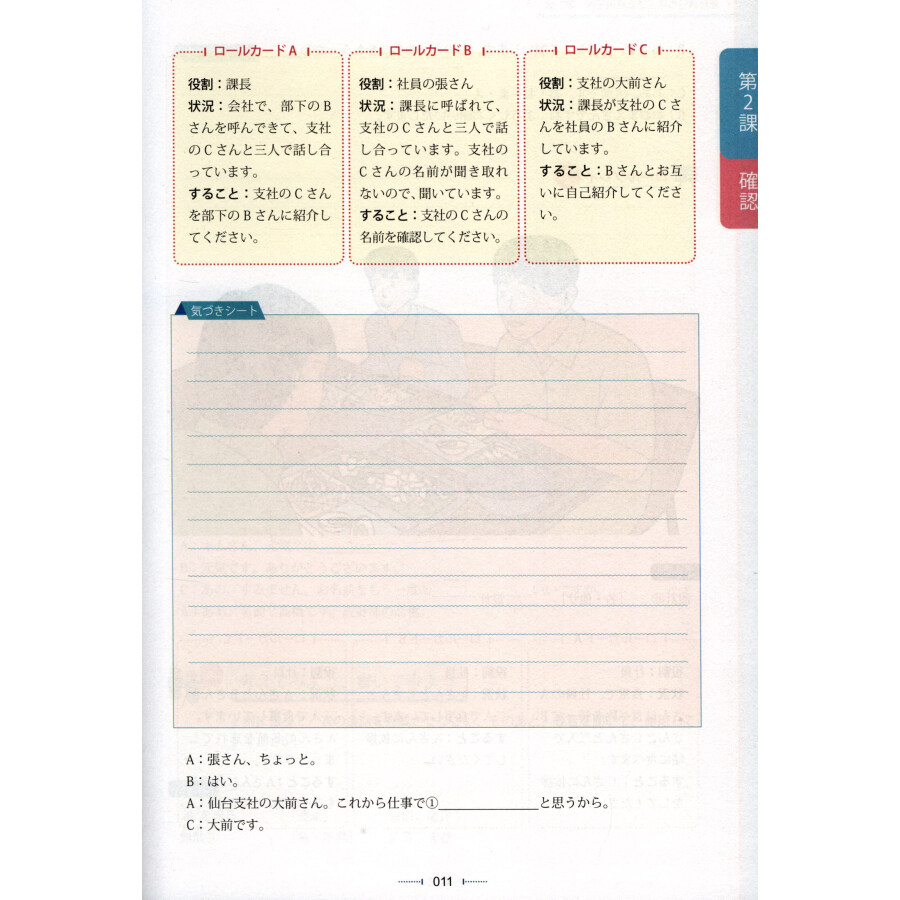 ロールカードA
役割：課長
状況：会社で、部下のB
さんを呼んできて、支社
のCさんと三人で話し合
っています。
すること：支社のCさん
を部下のBさんに紹介し
てください。
ロールカードB
役割：社員の張さん
状況：課長に呼ばれて、
支社のCさんと三人で話
し合っています。支社の
Cさんの名前が聞き取れ
ないので、聞いています。
すること：支社のCさんの
名前を確認してください。
ロールカードC
役割：支社の大前さん
状況：課長が支社のCさ
んを社員のBさんに紹介
しています。
すること：Bさんとお互
いに自己紹介してくださ
い。
第2課
確認
気づきシート
A：張さん、ちょっと。
B：はい。
A：仙台支社の大前さん。これから仕事で①＿＿＿＿＿＿＿＿と思うから。
C：大前です。
011